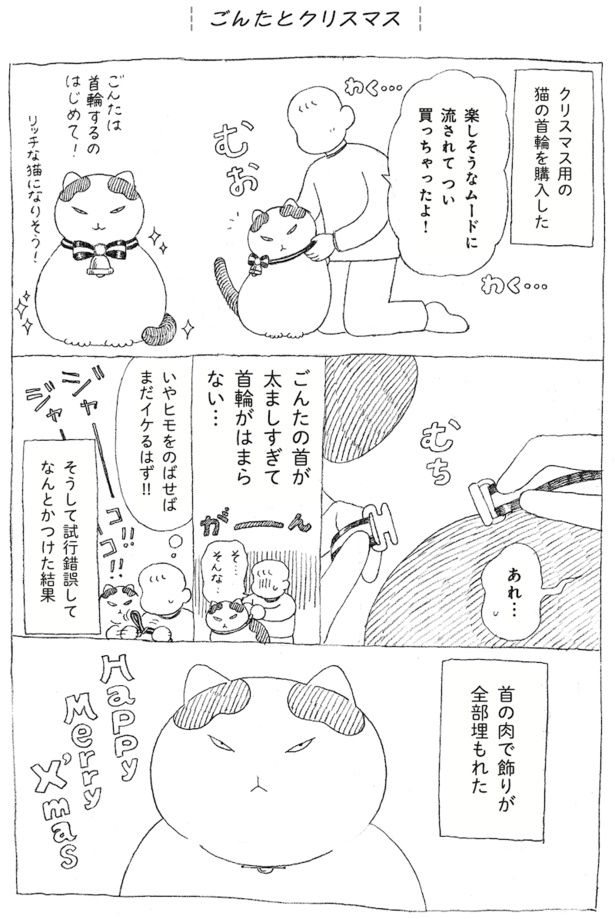 ごんたとクリスマス
クリスマス用の
猫の首輪を購入した
わく…
楽しそうなムードに
流されてつい
買っちゃったよ！
わく…
むお
ごんたは
首輪するの
はじめて！
リッチな猫になりそう！
むち
あれ…
ごんたの首が
太ましすぎて
首輪がはまら
ない…
がーーん
そ…
そんな…
いやヒモをのばせば
まだイケるはず!!
ジャー
ジャー
ゴ!!
ゴ!!
そうして試行錯誤して
なんとかつけた結果
首の肉で飾りが
全部埋もれた
Happy
Merry
X'mas